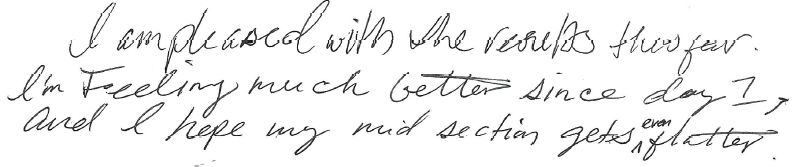 I am pleased with the results thus far.
I'm Feeling much better since day 1,
and I hope my mid section getes even flatter.